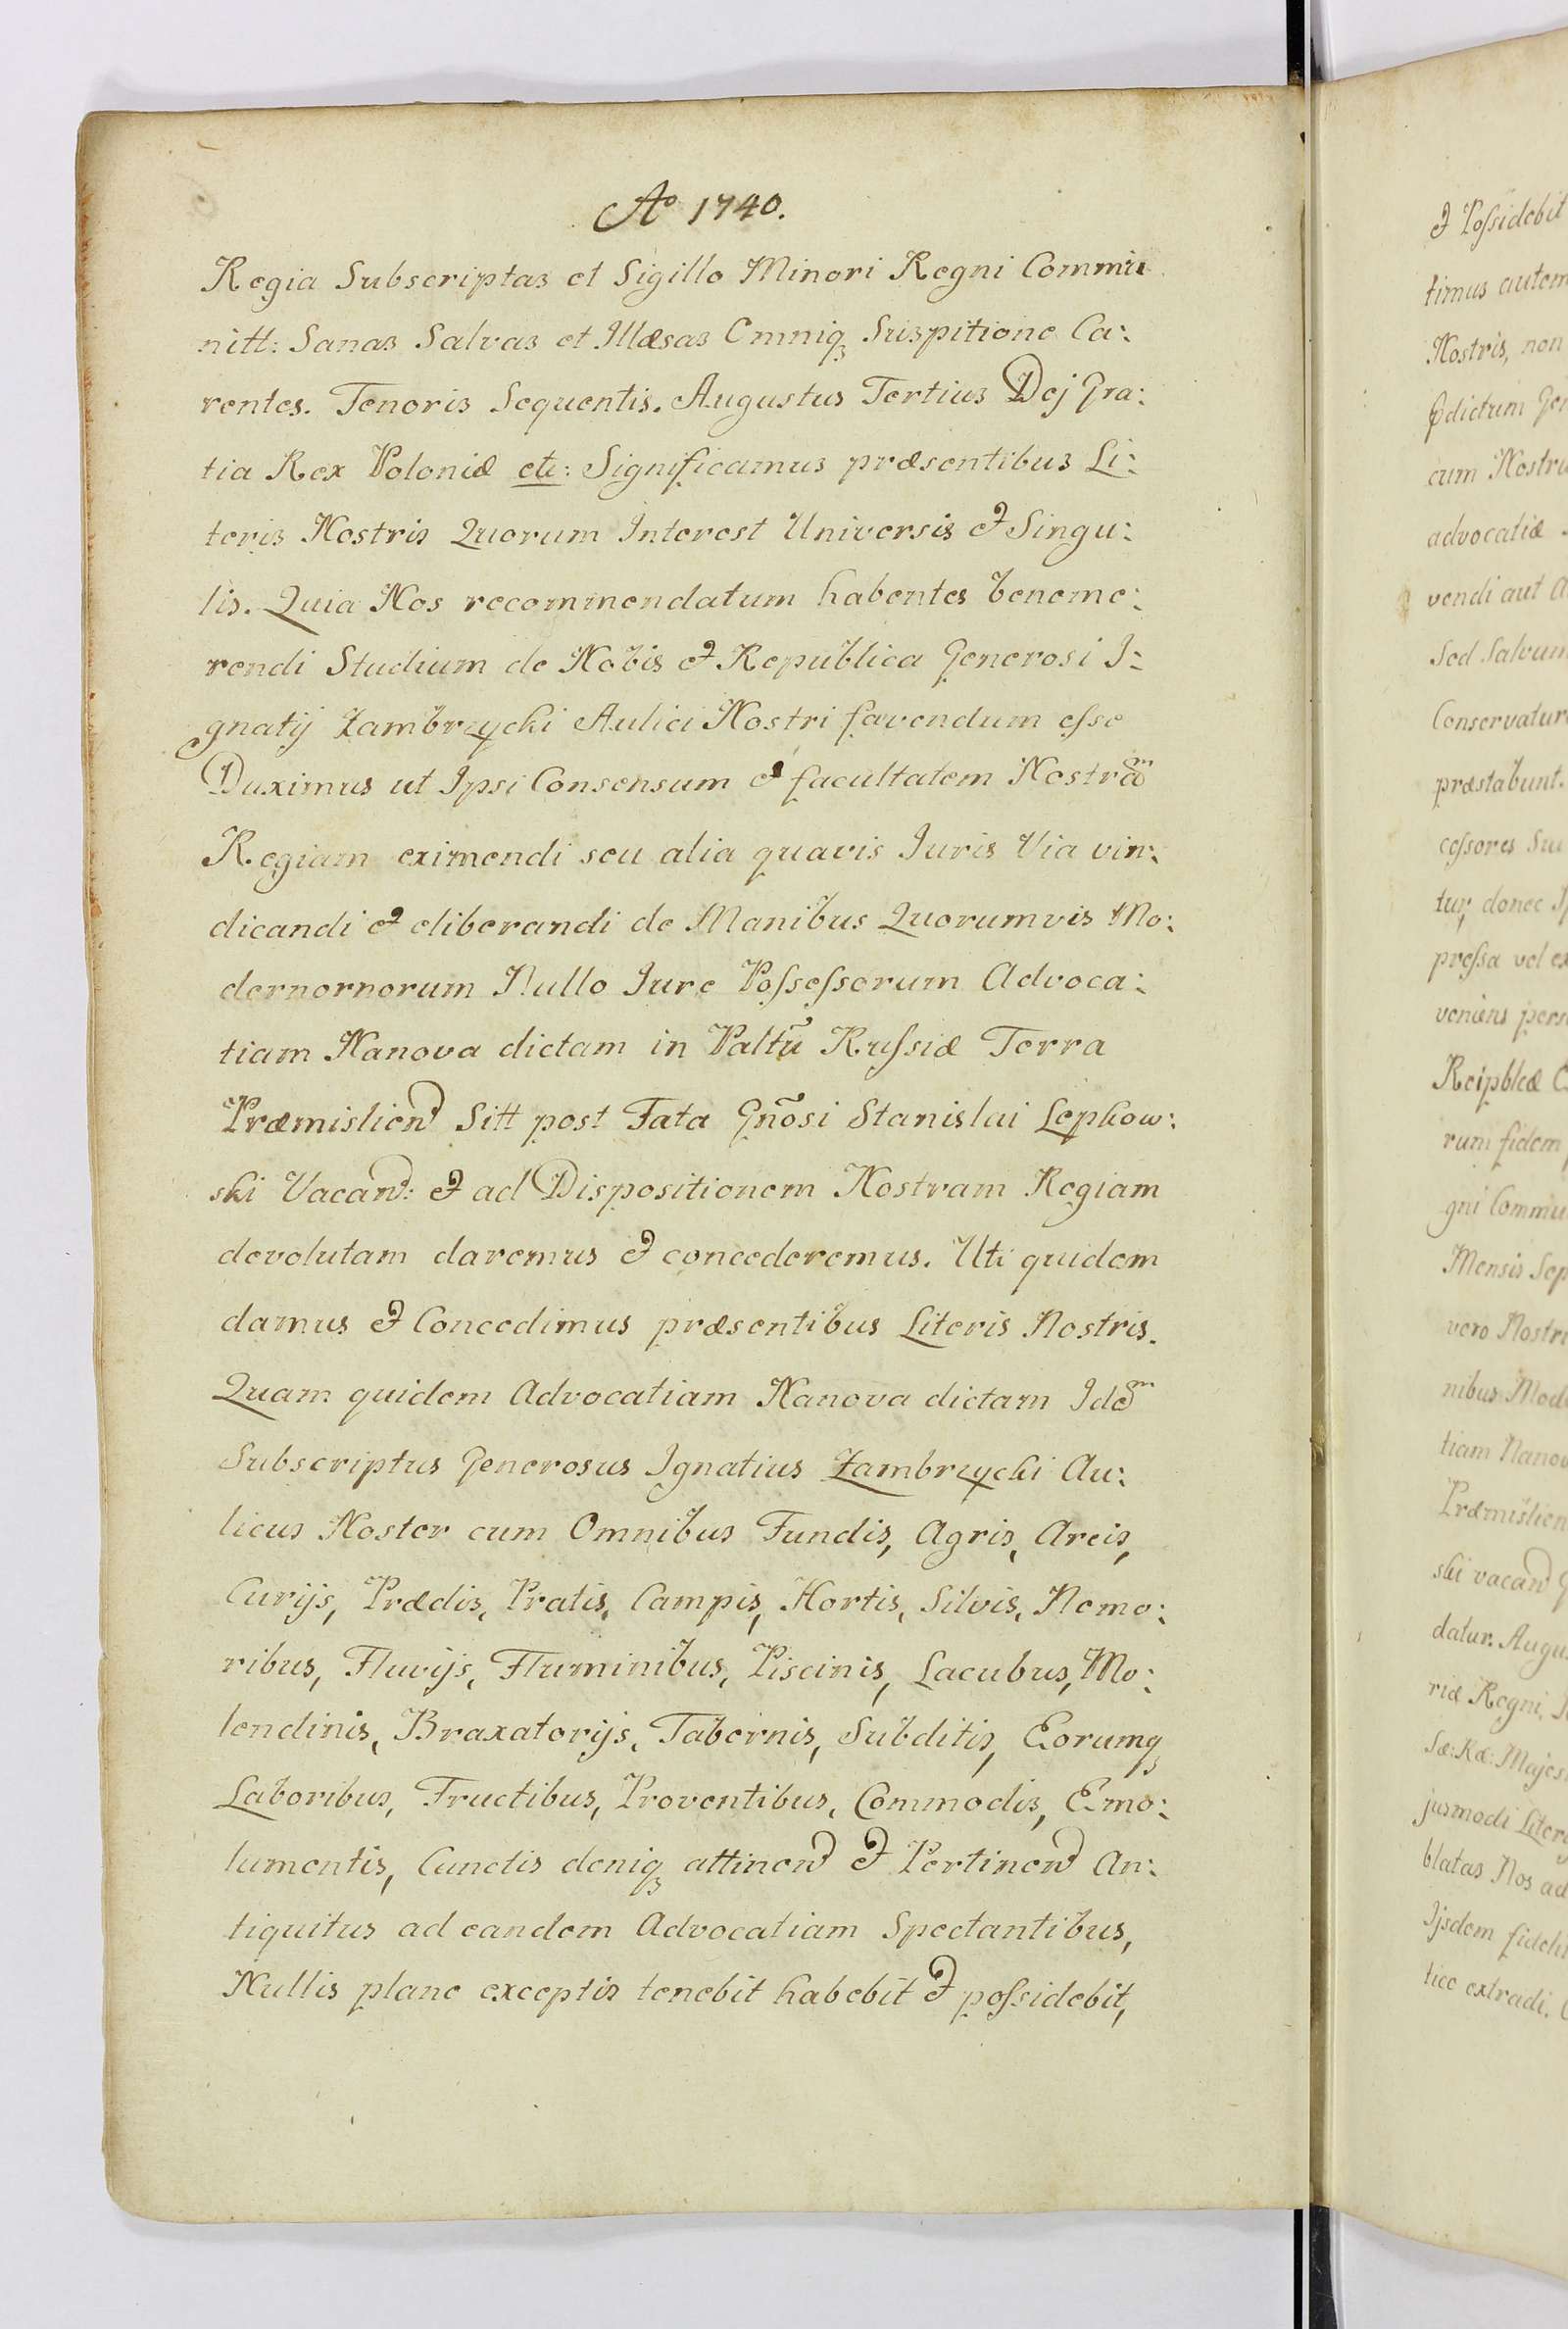 Aº 1740.
Regia Subscriptas et Sigillo Minori Regni Commu
nitt: Sanas Salvas et Illæsas Omniq₃ Suspitione Ca:
rentes. Tenoris Sequentis. Augustus Tertius Dej Gra:
tia Rex Poloniæ etc: Significamus præsentibus Li:
teris Nostris Quorum Interest Universis & Singu:
lis. Quia Nos recommendatum habentes beneme:
rendi Studium de Nobis & Republica Generosi I:
gnatij Zambrzycki Aulici Nostri favendum eſse
Duximus ut Ipsi Consensum & facultatem Nostrãm
Regiam eximendi seu alia quavis Juris Via vin:
dicandi & eliberandi de Manibus Quorumvis Mo:
dernornorum Nullo Jure Poſseſsorum Advoca:
tiam Nanova dictam in Paltũ Ruſsiæ Terra
Præmislien Sitt post Fata Gñosi Stanislai Lepkow:
ski Vacan: & ad Dispositionem Nostram Regiam
devolutam daremus & concederemus. Uti quidem
damus & Concedimus præsentibus Literis Nostris.
Quam quidem Advocatiam Nanova dictam Idem
Subscriptus Generosus Ignatius Zambrzycki Au:
licus Noster cum Omnibus Fundis, Agris, Areis,
Curijs, Prædis, Pratis, Campis, Hortis, Silvis, Nemo:
ribus, Fluvijs, Fluminibus, Piscinis, Lacubus, Mo:
lendinis, Braxatorijs, Tabernis, Subditis, Eorumq₃
Laboribus, Fructibus, Proventibus, Commodis, Emo:
lumentis, Cunctis deniq₃ attinen & Pertinen An:
tiquitus ad eandem Advocatiam Spectantibus,
Nullis plane exceptis tenebit habebit & poſsidebit,
& Poſsidebit
timus autem
Nostris, non
cum
advocatiæ
vendi aut
Sed Salvum
præstabunt.
ceſsores
tur, donec
preſsa vel
veniens
Reipblcæ
rum fidem
gni Commu
Mensis Sep
vero Nostri
nibus Mod
tiam Nanov
Præmislien
ski vacan
datur. Augu
riæ Regni,
Sæ: Ræ: Majes
jusmodi Liter
blatas Nos ad
Ijsdem
tice extradi.